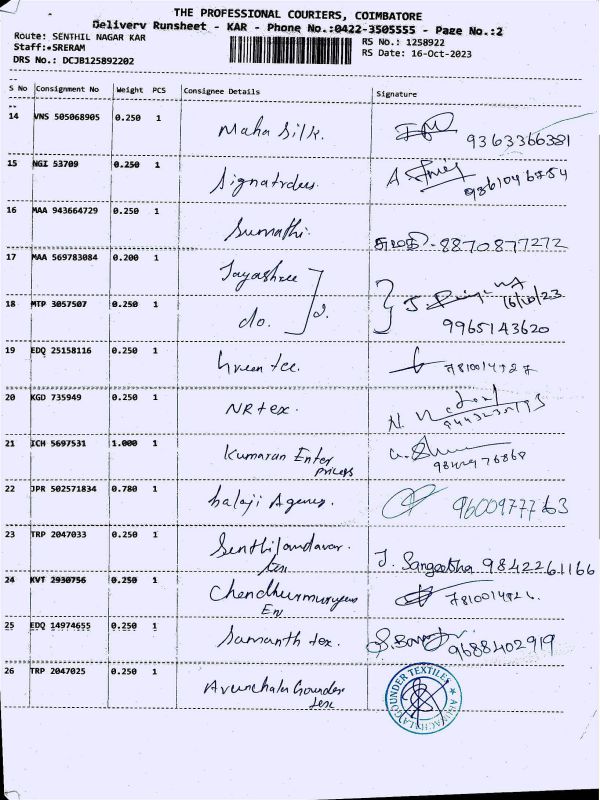 THE PROFESSIONAL COURIERS, COIMBATORE
Delivery Runsheet - KAR - Phone No.:0422-3505555 - Page No.:2
Route: SENTHIL NAGAR KAR
RS No.: 1258922
Staff:*SRERAM
RS Date: 16-Oct-2023
DRS No.: DCJB125892202
S No Consignment No Weight PCS Consignee Details Signature
14 VNS 505068905 0.250 1 Maha Silk. 9363366381
15 NGI 53709 0.250 1
16 MAA 943664729 0.250 1 Sumathi. சுமதி - 8870877272
17 MAA 569783084 0.200 1 Jayashree
16/10/23
18 MTP 3057507 0.250 1 do. 2. 9965143620
19 EDQ 25158116 0.250 1 Green tee.
20 KGD 735949 0.250 1 NR tex.
21 ICH 5697531 1.000 1 Kumaran Enter
prices
22 JPR 502571834 0.780 1 balaji Agency
23 TRP 2047033 0.250 1 Senthilandavar. J. Sangeetha 9842261166
tex
24 KVT 2930756 0.250 1
En
25 EDQ 14974655 0.250 1 Samanth tex. 9688402919
26 TRP 2047025 0.250 1 Arunchala Gounder
tex
ARUNACHALA GOUNDER TEXTILES